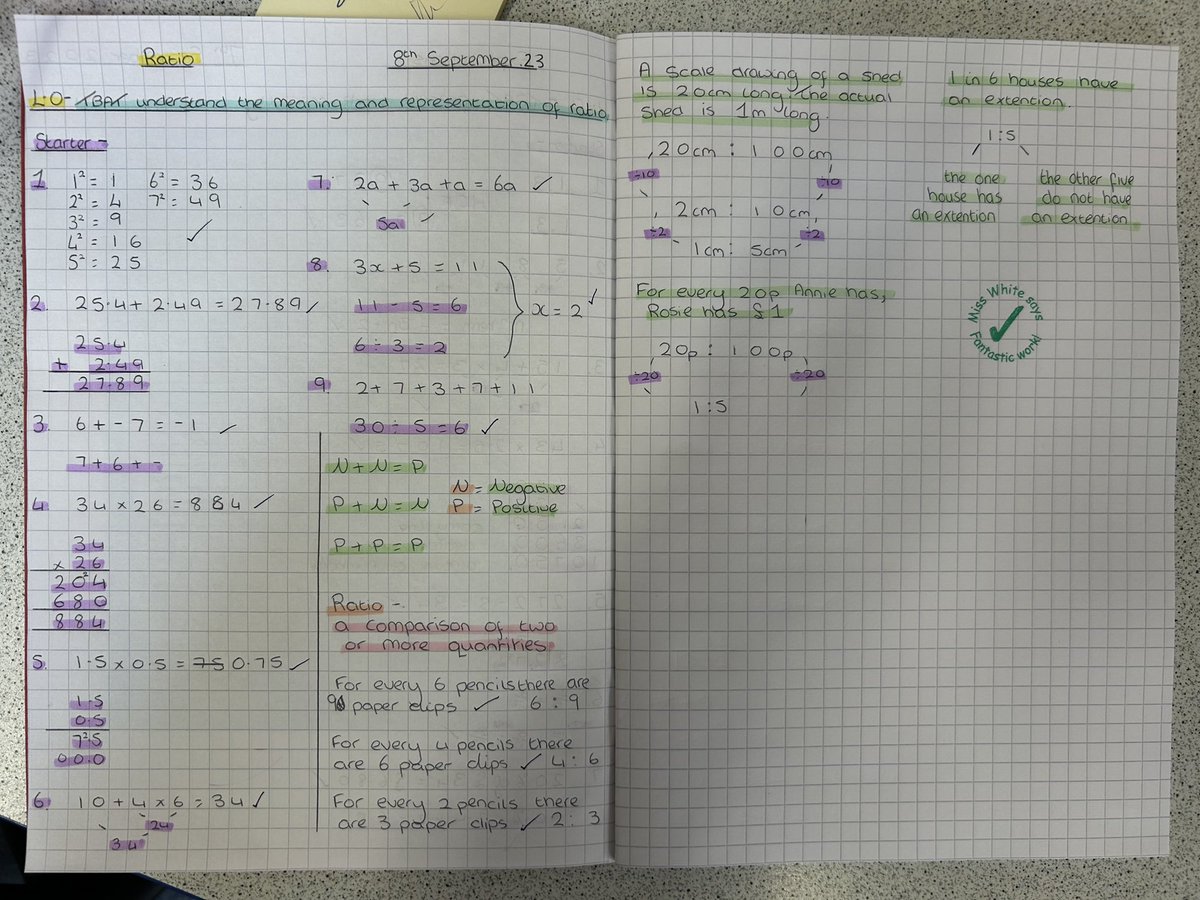 Ratio
8th September.23
LO- TBAT understand the meaning and representation of ratio
Starter -
1 1² = 1 6² = 36
2² = 4 7² = 49
3² = 9
4² = 16
5² = 25
2. 25.4 + 2.49 = 27.89
25.4
+ 2.49
27.89
3. 6 + - 7 = -1
7 + 6 + -
4 34 × 26 = 884
34
× 26
20²4
680
884
5. 1.5 × 0.5 = 75 0.75
1.5
0.5
7²5
00.0
6. 10 + 4 × 6 = 34
24
34
7. 2a + 3a + a = 6a
5a
8. 3x + 5 = 11
11 - 5 = 6
x = 2
6 ÷ 3 = 2
9. 2 + 7 + 3 + 7 + 11
30 ÷ 5 = 6
N + N = P
N = Negative
P + N = N P = Positive
P + P = P
Ratio -
a comparison of two
or more quantities.
For every 6 pencils there are
9 paper clips 6 : 9
For every 4 pencils there
are 6 paper clips 4 : 6
For every 2 pencils there
are 3 paper clips 2 : 3
A scale drawing of a shed
is 20cm long the actual
shed is 1m long.
20cm : 100cm
÷10 ÷10
2cm : 10cm
÷2 ÷2
1cm : 5cm
For every 20p Annie has,
Rosie has £1
20p : 100p
÷20 ÷20
1:5
1 in 6 houses have
an extention.
1:5
the one the other five
house has do not have
an extention an extention.
Miss White says
Fantastic work!